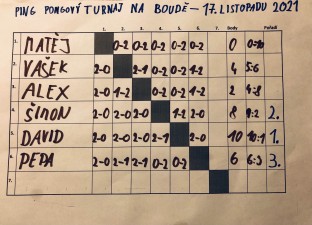 PING PONGOVÝ TURNAJ NA BOUDĚ – 17. LISTOPADU 2021
1. 2. 3. 4. 5. 6. 7. Body Pořadí
1. MATĚJ 0-2 0-2 0-2 0-2 0-2 0 0-10
2. VAŠEK 2-0 2-1 0-2 0-2 1-2 4 5:6
3. ALEX 2-0 1-2 0-2 0-2 1-2 2 4-8
4. ŠIMON 2-0 2-0 2-0 1-2 2-0 8 9:2 2.
5. DAVID 2-0 2-0 2-0 2-1 2-0 10 10:1 1.
6. PEPA 2-0 2-1 2-1 0-2 0-2 6 6:3 3.
7.